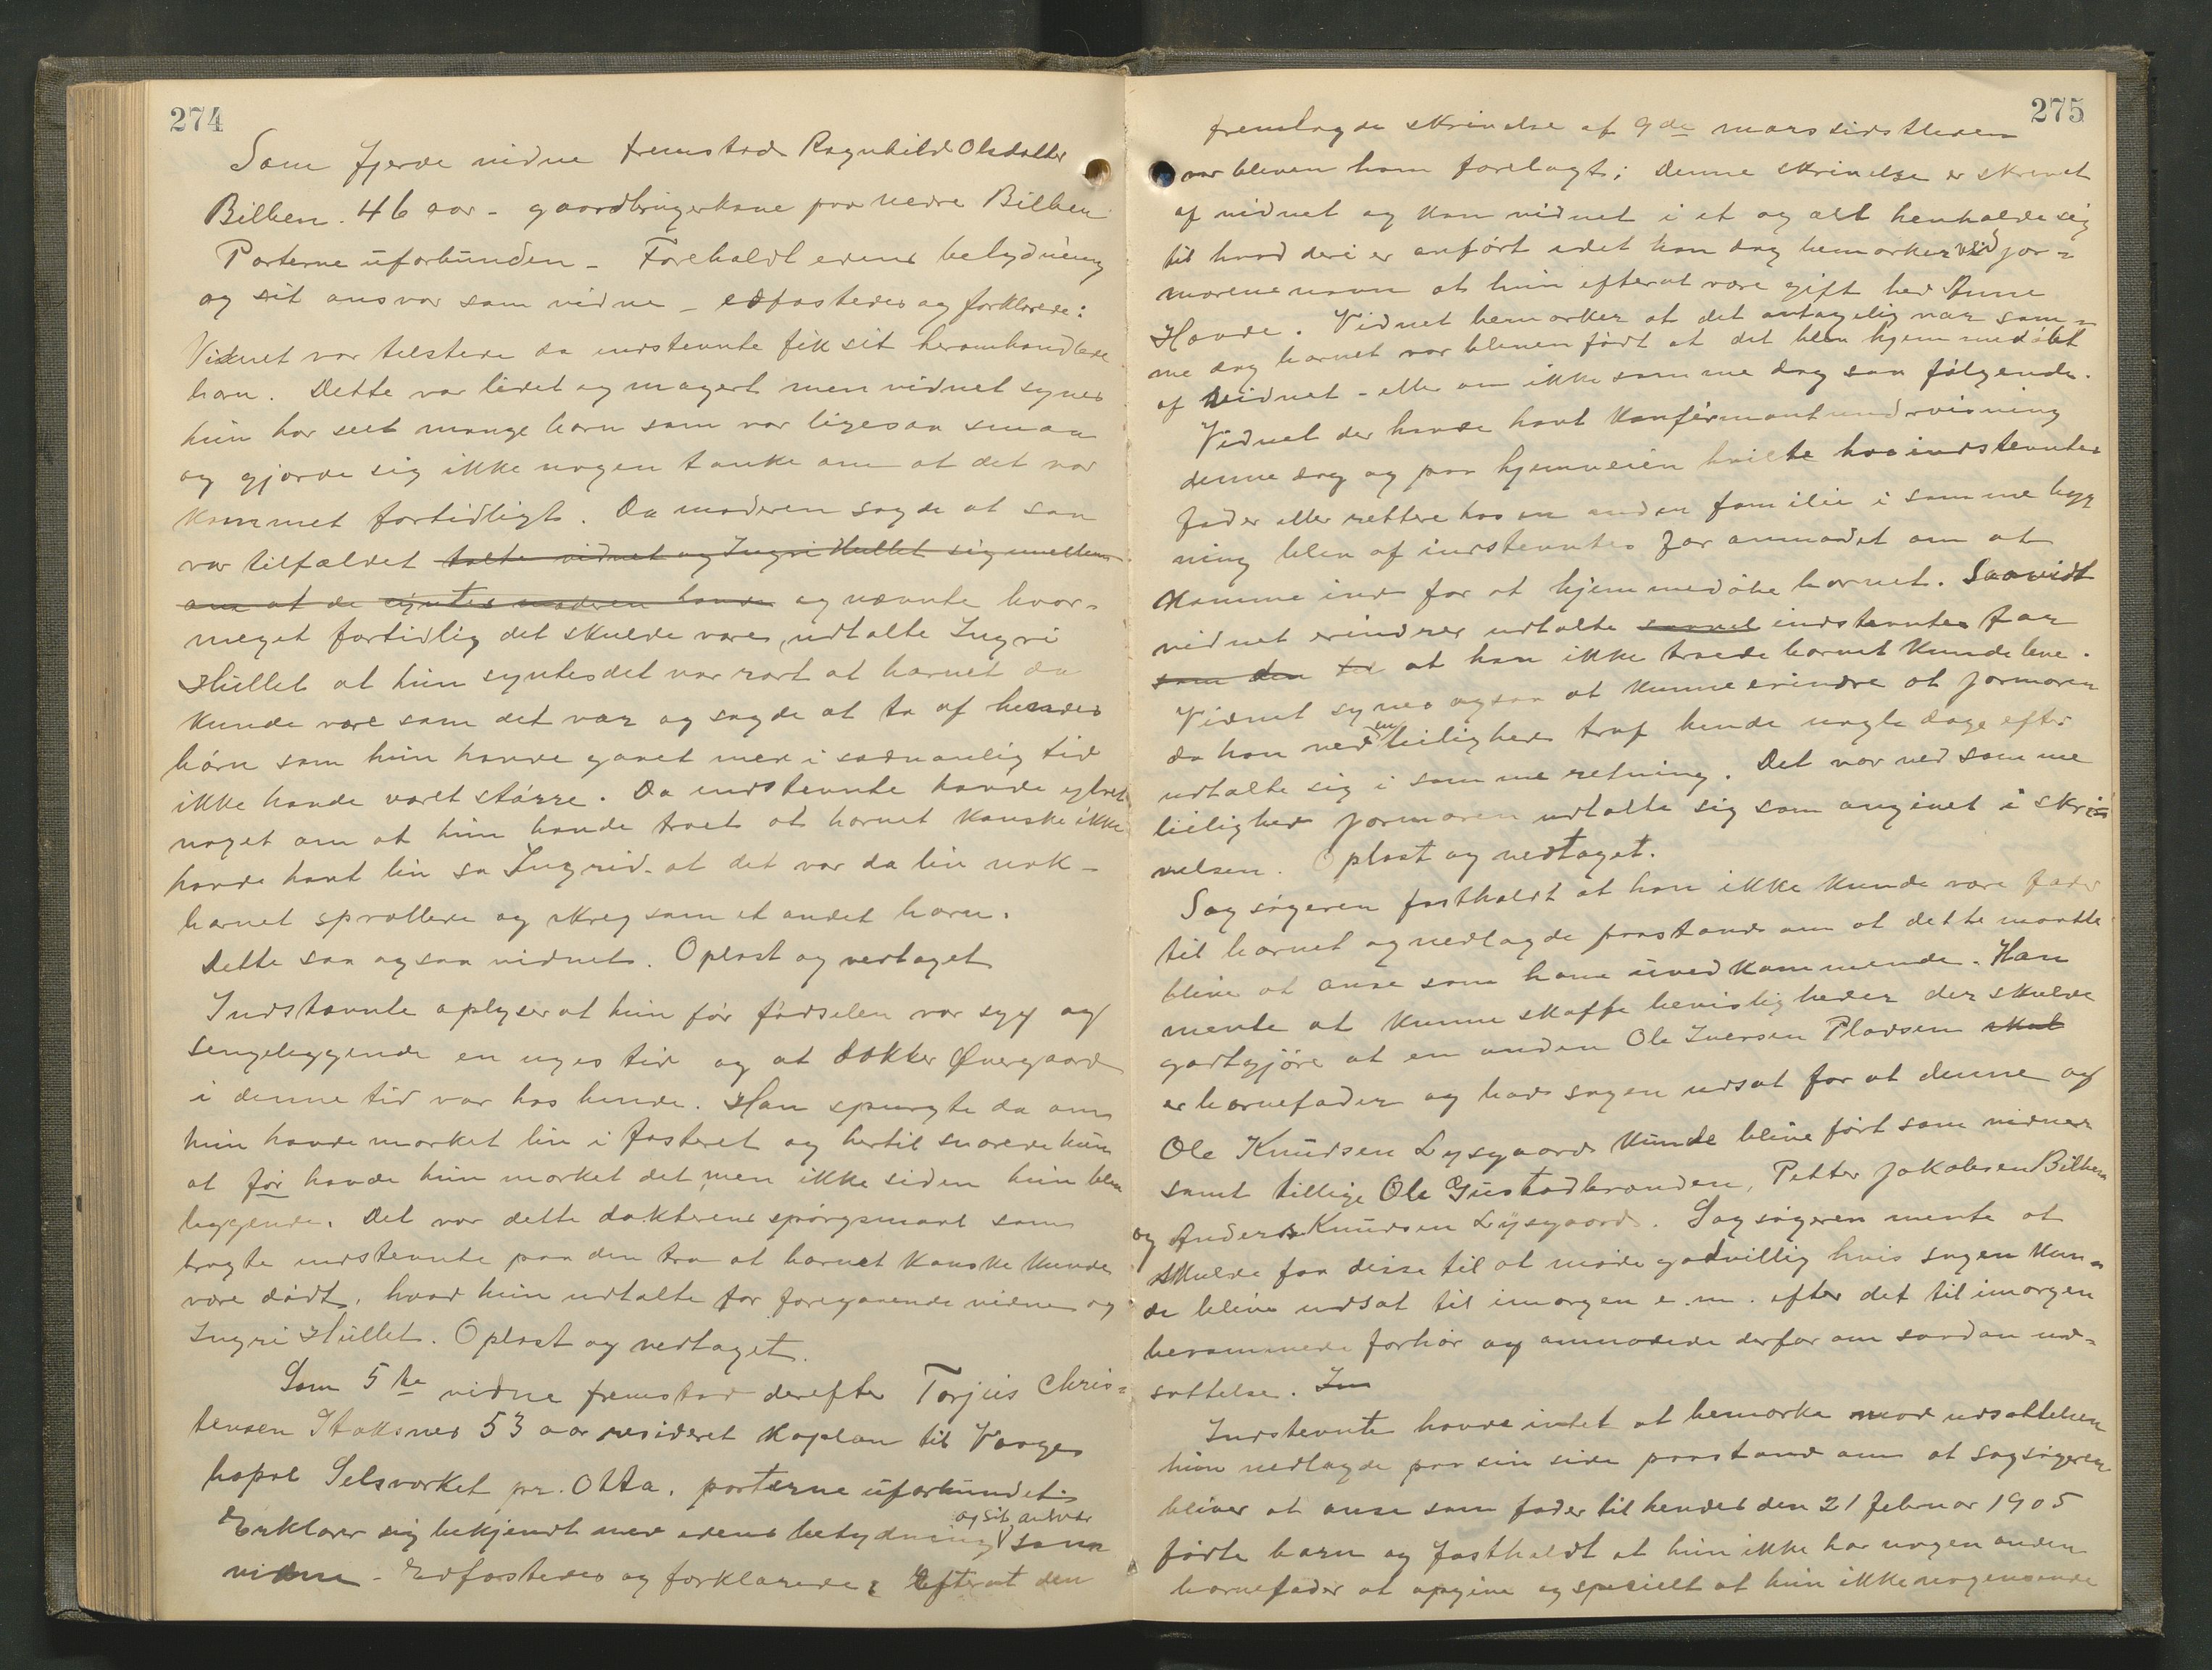 274
Som fjerde vidne fremstod Ragnhild Olsdatter
Bilben. 46 aar - gaardbrugerkone paa nedre Bilben
Parterne uforbunden - Foreholdt edens betydning
og sit ansvar som vidne - edfæstedes og forklarede:
Vidnet var tilstede da indstevnte fik sit heromhandlede
barn. Dette var lidet og magert men vidnet synes
hun har seet mange barn som var ligesaa smaa
og gjorde sig ikke nogen tanke om at det var
kommet fortidligt. Da moderen sagde at saa
var tilfældet talte vidnet og Ingri Hullet sig imellem
om at de syntes moderen havde og nævnte hvor-
meget fortidlig det skulde være, udtalte Ingri
Hullet at hun syntes det var rart at barnet da
kunde være som det var og sagde at to af hendes
børn som hun havde gaaet med i sædvanlig tid
ikke havde været større. Da indstevnte havde ytret
noget om at hun havde troet at barnet kanske ikke
havde havt liv sa Ingrid at det var da liv nok -
barnet sprællede og skreg som et andet barn.
Dette saa ogsaa vidnet. Oplæst og vedtaget
Indstævnte oplyser at hun før fødselen var syg og
sengeliggende en uges tid og at dokter Øvergaard
i denne tid var hos hende. Han spurgte da om
hun havde merket liv i fosteret og hertil svarede hun
at før havde hun merket det, men ikke siden hun blev
liggende. Det var dette dokterens spørgsmaal som
bragte indstevnte paa den tro at barnet kanske kunde
være dødt, hvad hun udtalte for foregaaende vidne og
Ingri Hullet. Oplæst og vedtaget.
Som 5te vidne fremstod derefter Torjus Chris-
tensen Stoksnes 53 aar resideret kaplan til Vaage
bopæl Selsværket pr. Otta, parterne uforbundet
og sit ansvar
Erklærer sig bekjendt med edens betydning som
vidne - Edfæstedes og forklarede: Efterat den
275
fremlagde skrivelse af 9de mars sidstleden
var bleven ham forelagt; Denne skrivelse er skrevet
af vidnet og kan vidnet i et og alt henholde sig
til hvad deri er anført idet han dog bemærker ved jor-
morens navn at hun efterat være gift hed Anne
Hovde. Vidnet bemærker at det antagelig var sam-
me dag barnet var bleven født at det blev hjemmedøbt
af vidnet - eller om ikke samme dag saa følgende.
Vidnet der havde havt konfirmantundvisning
denne dag og paa hjemveien hvilte hos indstevntes
fader eller rettere hos en anden familie i samme byg
ning blev af indstevntes far anmodet om at
komme ind for at hjemmedøbe barnet. Saavidt
vidnet erindrer udtalte saavel indstevntes far
som den til at han ikke troede barnet kunde leve.
Vidnet synes ogsaa at kunne erindre at jormoren
da han ved en leilighed traf hende nogle dage efter
udtalte sig i samme retning. Det var ved samme
leilighed jormoren udtalte sig som angivet i skri-
velsen. Oplæst og vedtaget.
Sagsøgeren fastholdt at han ikke kunde være fader
til barnet og nedlagde paastand om at dette maatte
blive at anse som ham uvedkommende. Han
mente at kunne skaffe bevisligheder der skulde
godtgjøre at en anden Ole Iversen Pladsen skul
er barnefader og bad sagen udsat for at denne og
Ole Knudsen Lysgaard kunde blive ført som vidner
samt tillige Ole Gustadbranden, Petter Jakobsen Bilben
og Anders Knudsen Lysgaard. Sagsøgeren mente at
skulde faa disse til at møde godvillig hvis sagen kun-
de blive udsat til imorgen e.m. efter det til imorgen
berammede forhør og anmodede derfor om saadan ud-
sættelse. Im
Indstevnte havde intet at bemærke mod udsættelsen
hun nedlagde paa sin side paastand om at sagsøgeren
bliver at anse som fader til hendes den 21 februar 1905
fødte barn og fastholdt at hun ikke har nogen anden
barnefader at opgive og specielt at hun ikke nogensinde